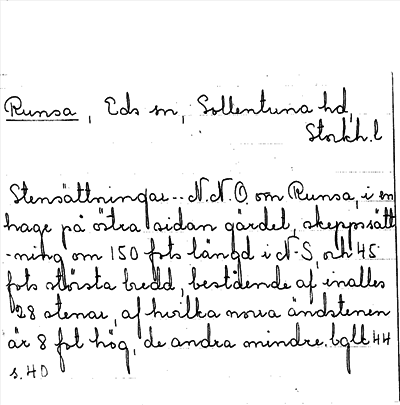 Runsa, Eds sn, Sollentuna hd,
Stockh. l
Stensättningar -- N.N.O. om Runsa, i en
hage på östra sidan gärdet, skeppssätt
-ning om 150 fots längd i N-S, och 45
fots största bredd, bestående af inalles
28 stenar, af hvilka norra ändstenen
är 8 fot hög, de andra mindre. bglt 44
s. 40